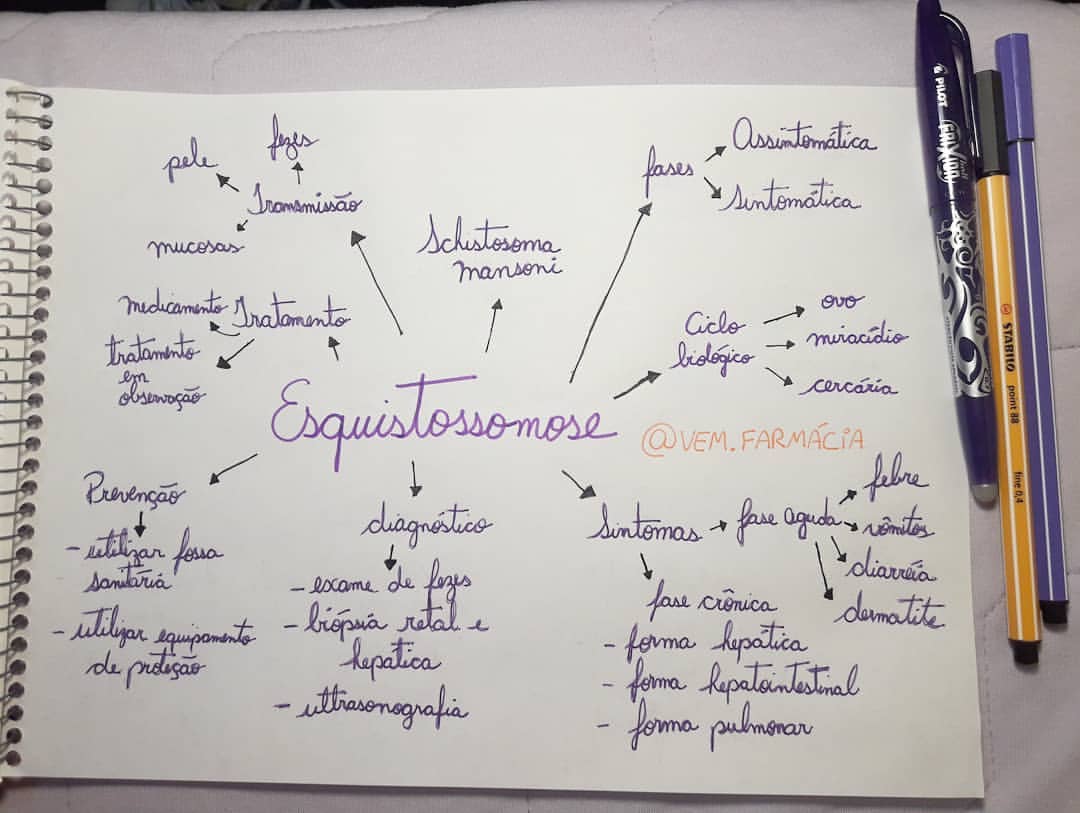 fezes
pele
Transmissão
mucosas
Schistosoma
mansoni
fases
Assintomática
Sintomática
medicamento
Tratamento
tratamento
em
observação
Ciclo
biológico
ovo
miracídio
cercária
Esquistossomose
@VEM.FARMÁCIA
Prevenção
- utilizar fossa
sanitária
- utilizar equipamento
de proteção
diagnóstico
- exame de fezes
- biópsia retal e
hepática
- ultrasonografia
Sintomas
fase aguda
febre
vômitos
diarréia
dermatite
fase crônica
- forma hepática
- forma hepatointestinal
- forma pulmonar
PILOT
FRIXION
STABILO
point 88
fine 0,4